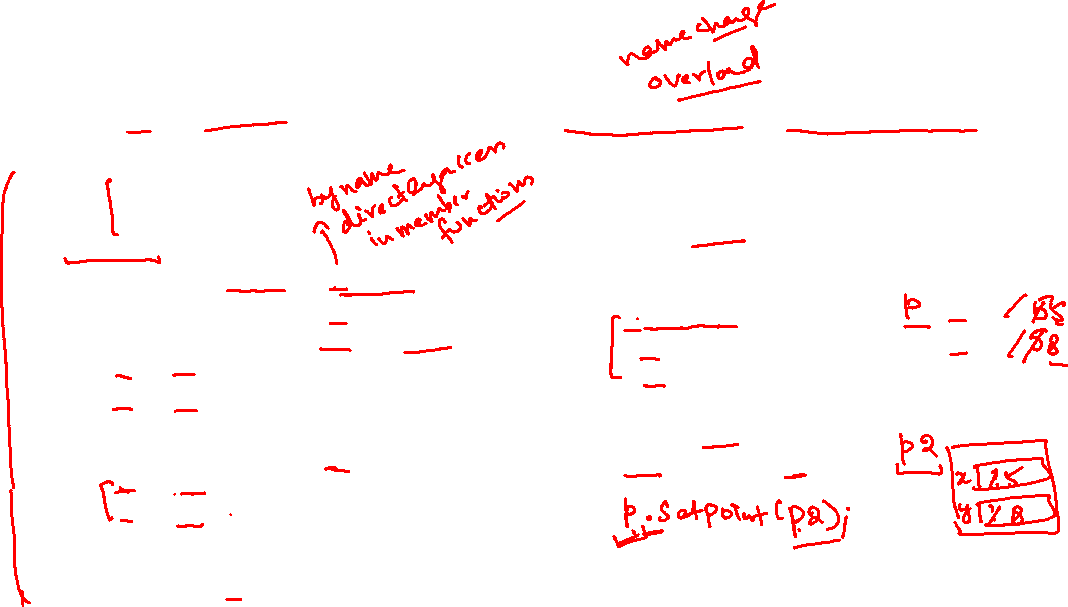 name change
overload
by name
directly access
in member
functions
p
15
18
p2
x 15
y 18
p.setpoint(p2);